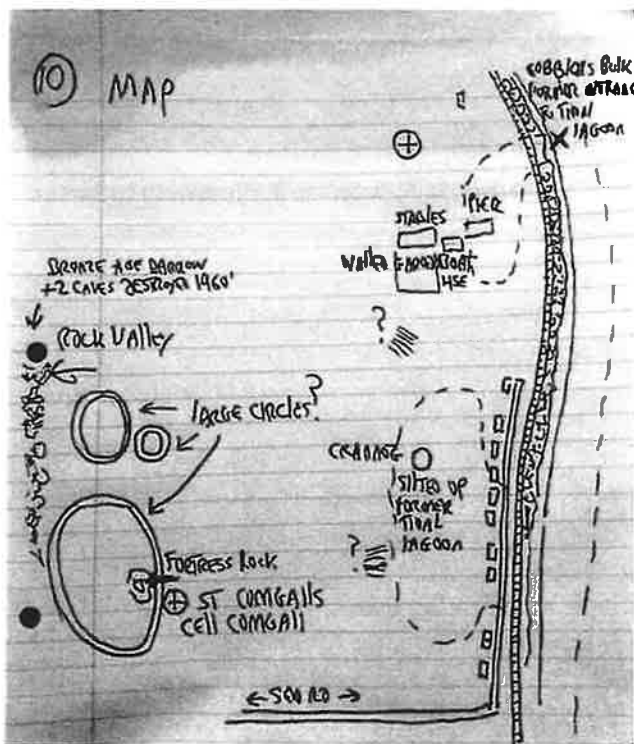 10
MAP
COBBLERS BULK
FORMER
TIDAL
LAGOON
PIER
STABLES
BOAT
HSE
BRONZE AGE BARROW
+2 CAVES DESTROYED 1960'
ROCK VALLEY
?
LARGE CIRCLES?
CRANNOG
SILTED UP
FORMER
TIDAL
LAGOON
?
FORTRESS ROCK
ST COMGALLS
CELL COMGALL